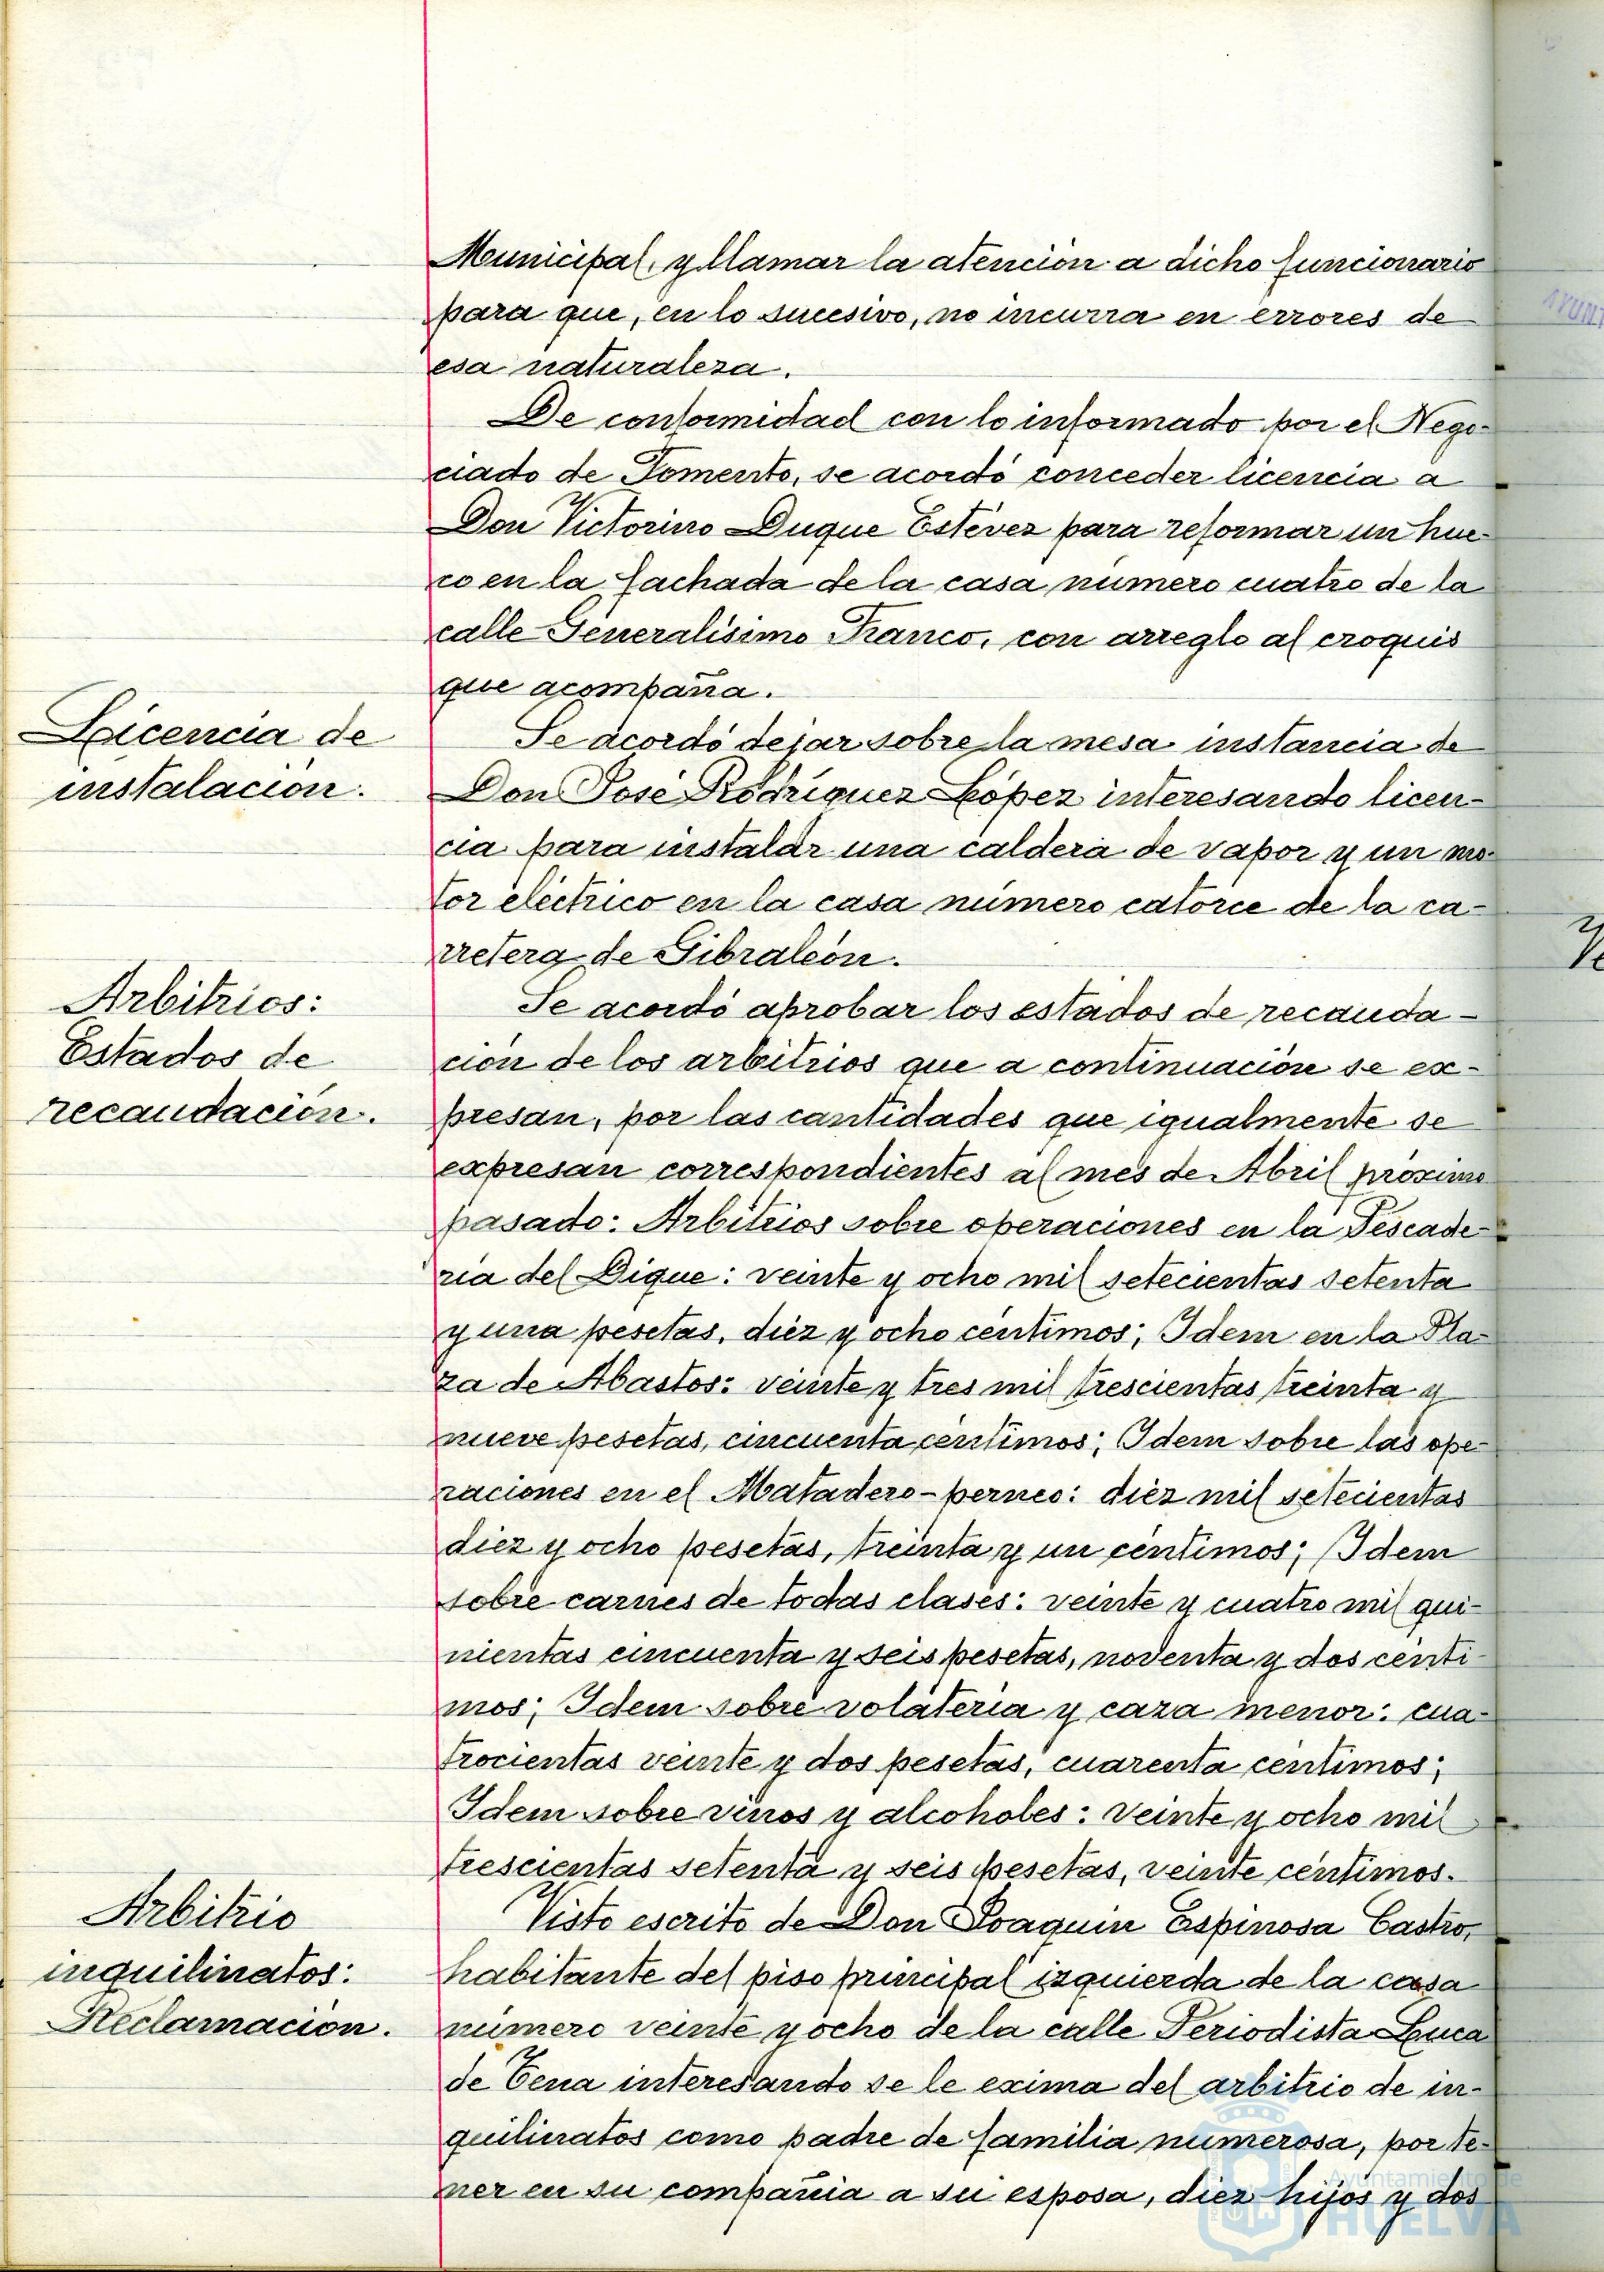 Municipal, y llamar la atención a dicho funcionario
para que, en lo sucesivo, no incurra en errores de
esa naturaleza.
De conformidad con lo informado por el Nego-
ciado de Fomento, se acordó conceder licencia a
Don Victorino Duque Estévez para reformar un hue-
co en la fachada de la casa número cuatro de la
calle Generalísimo Franco, con arreglo al croquis
que acompaña.
Licencia de
instalación.
Se acordó dejar sobre la mesa instancia de
Don José Rodríguez López interesando licen-
cia para instalar una caldera de vapor y un mo-
tor eléctrico en la casa número catorce de la ca-
rretera de Gibraleón.
Arbitrios:
Estados de
recaudación.
Se acordó aprobar los estados de recauda-
ción de los arbitrios que a continuación se ex-
presan, por las cantidades que igualmente se
expresan correspondientes al mes de Abril próximo
pasado: Arbitrios sobre operaciones en la Pescade-
ría del Dique: veinte y ocho mil setecientas setenta
y una pesetas, diez y ocho céntimos; Idem en la Pla-
za de Abastos: veinte y tres mil trescientas treinta y
nueve pesetas, cincuenta céntimos; Idem sobre las ope-
raciones en el Matadero-perneo: diez mil setecientas
diez y ocho pesetas, treinta y un céntimos; Idem
sobre carnes de todas clases: veinte y cuatro mil qui-
nientas cincuenta y seis pesetas, noventa y dos cénti-
mos; Idem sobre volatería y caza menor: cua-
trocientas veinte y dos pesetas, cuarenta céntimos;
Idem sobre vinos y alcoholes: veinte y ocho mil
trescientas setenta y seis pesetas, veinte céntimos.
Arbitrio
inquilinatos:
Reclamación.
Visto escrito de Don Joaquin Espinosa Castro,
habitante del piso principal izquierda de la casa
número veinte y ocho de la calle Periodista Luca
de Tena interesando se le exima del arbitrio de in-
quilinatos como padre de familia numerosa, por te-
ner en su compañía a su esposa, diez hijos y dos
Ayuntamiento de
HUELVA